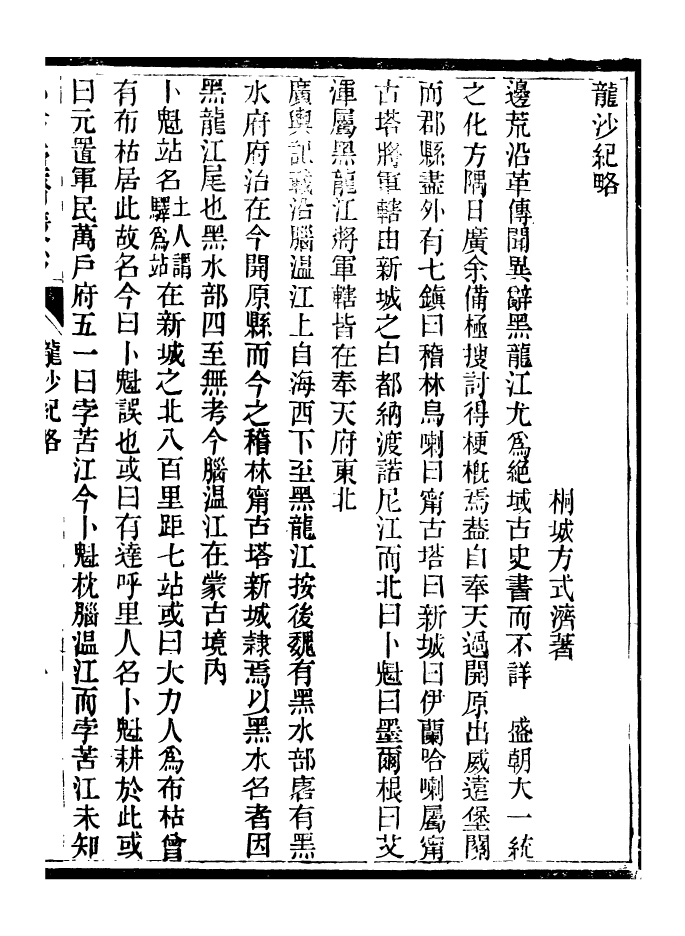 龍沙紀略
桐城方式濟著
邊荒沿革傳聞異辭黑龍江尤爲絕域古史書而不詳　盛朝大一統
之化方隅日廣余備極搜討得梗槪焉葢自奉天過開原出威遠堡關
而郡縣盡外有七鎮曰稽林烏喇曰甯古塔曰新城曰伊蘭哈喇屬甯
古塔將軍轄由新城之白都納渡諾尼江而北曰卜魁曰墨爾根曰艾
渾屬黑龍江將軍轄皆在奉天府東北
廣輿記載沿腦溫江上自海西下至黑龍江按後魏有黑水部唐有黑
水府府治在今開原縣而今之稽林甯古塔新城隷焉以黑水名者因
黑龍江尾也黑水部四至無考今腦溫江在蒙古境內
卜魁站名土人謂驛爲站在新城之北八百里距七站或曰大力人爲布枯曾
有布枯居此故名今曰卜魁誤也或曰有達呼里人名卜魁耕於此或
曰元置軍民萬戶府五一曰孛苦江今卜魁枕腦溫江而孛苦江未知
龍沙紀略